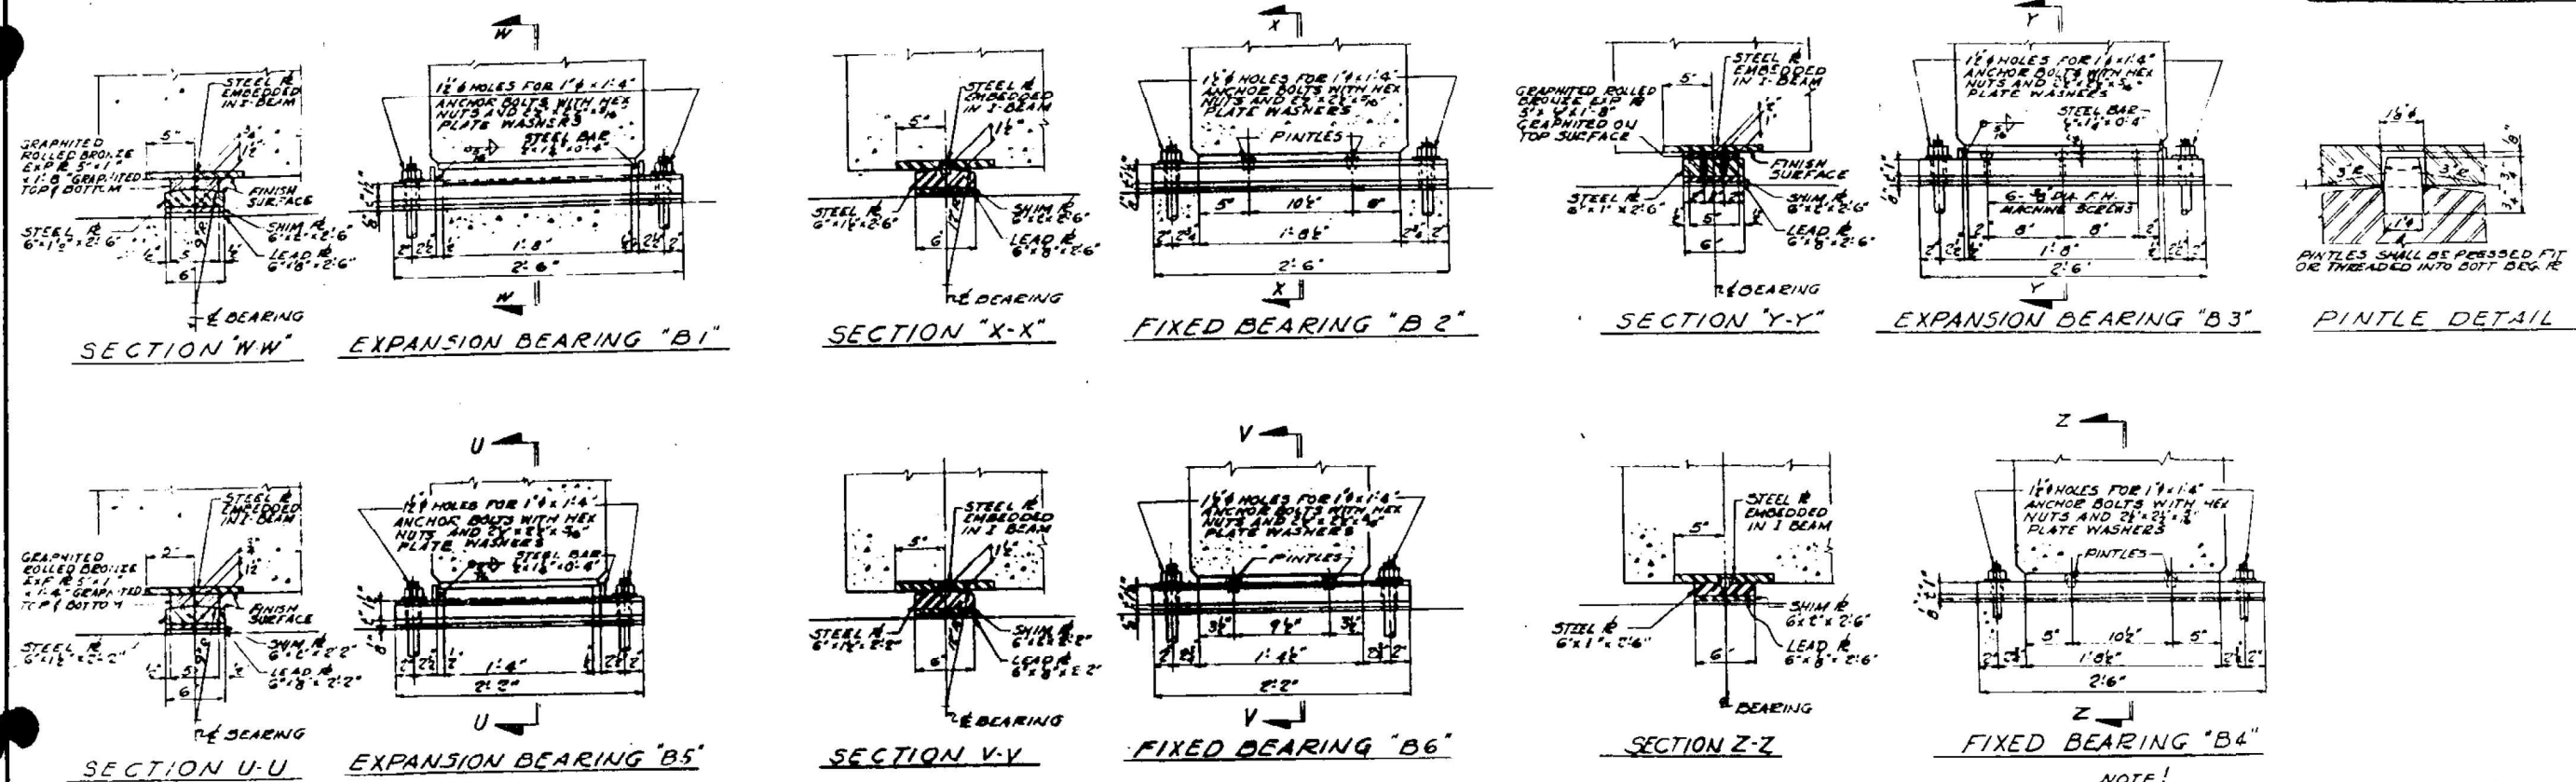 W
STEEL ℞
EMBEDDED
IN I-BEAM
5"
GRAPHITED
ROLLED BRONZE
EXP ℞ 5" x 1"
x 1'-8" GRAPHITED
TOP & BOTTOM
FINISH
SURFACE
STEEL ℞
6" x 1½" x 2'-6"
SHIM ℞
LEAD ℞
6" x ⅛" x 2'-6"
5
6"
℄ BEARING
SECTION "W-W"
1½" ϕ HOLES FOR 1" ϕ x 1'-4"
ANCHOR BOLTS WITH HEX
NUTS AND
PLATE WASHERS
STEEL BAR
2" 2½" 1'-8" 2½" 2"
2'-6"
W
EXPANSION BEARING "B1"
X
STEEL ℞
EMBEDDED
IN I-BEAM
5"
1½"
STEEL ℞
6" x 1½" x 2'-6"
SHIM ℞
LEAD ℞
6" x ⅛" x 2'-6"
6"
℄ BEARING
SECTION "X-X"
1½" ϕ HOLES FOR 1" ϕ x 1'-4"
ANCHOR BOLTS WITH HEX
NUTS AND
PLATE WASHERS
PINTLES
5" 10½"
2" 2¾" 1'-8½" 2¾" 2"
2'-6"
X
FIXED BEARING "B2"
Y
STEEL ℞
EMBEDDED
IN I-BEAM
5"
GRAPHITED ROLLED
BRONZE EXP ℞
GRAPHITED ON
TOP SURFACE
1"
FINISH
SURFACE
STEEL ℞
6" x 1" x 2'-6"
SHIM ℞
LEAD ℞
6" x ⅛" x 2'-6"
5"
6"
℄ BEARING
SECTION "Y-Y"
ANCHOR BOLTS WITH HEX
NUTS AND
PLATE WASHERS
STEEL BAR
DIA. F.H.
MACHINE SCREWS
2" 8" 8" 2"
2" 2½" 1'-8" 2½" 2"
2'-6"
Y
EXPANSION BEARING "B3"
PINTLES SHALL BE PRESSED FIT
OR THREADED INTO BOTT BRG. ℞
PINTLE DETAIL
U
STEEL ℞
EMBEDDED
IN I-BEAM
GRAPHITED
ROLLED BRONZE
EXP ℞ 5" x 1"
x 1'-4" GRAPHITED
TOP & BOTTOM
FINISH
SURFACE
STEEL ℞
6" x 1½" x 2'-2"
SHIM ℞
LEAD ℞
6" x ⅛" x 2'-2"
5
6"
℄ BEARING
SECTION U-U
1½" ϕ HOLES FOR 1" ϕ x 1'-4"
ANCHOR BOLTS WITH HEX
NUTS AND
PLATE WASHERS
STEEL BAR
2" 2½" 1'-4" 2½" 2"
2'-2"
U
EXPANSION BEARING "B5"
V
STEEL ℞
EMBEDDED
IN I-BEAM
5"
1½"
STEEL ℞
6" x 1½" x 2'-2"
SHIM ℞
LEAD ℞
6" x ⅛" x 2'-2"
6"
℄ BEARING
SECTION V-V
1½" ϕ HOLES FOR 1" ϕ x 1'-4"
ANCHOR BOLTS WITH HEX
NUTS AND
PLATE WASHERS
PINTLES
3½" 9½" 3½"
1'-4½"
2'-2"
V
FIXED BEARING "B6"
Z
STEEL ℞
EMBEDDED
IN I BEAM
5"
STEEL ℞
6" x 1" x 2'-6"
SHIM ℞
LEAD ℞
6" x ⅛" x 2'-6"
6"
BEARING
SECTION Z-Z
1½" ϕ HOLES FOR 1" ϕ x 1'-4"
ANCHOR BOLTS WITH HEX
NUTS AND
PLATE WASHERS
PINTLES
5" 10½" 5"
1'-8½"
2'-6"
Z
FIXED BEARING "B4"
NOTE!